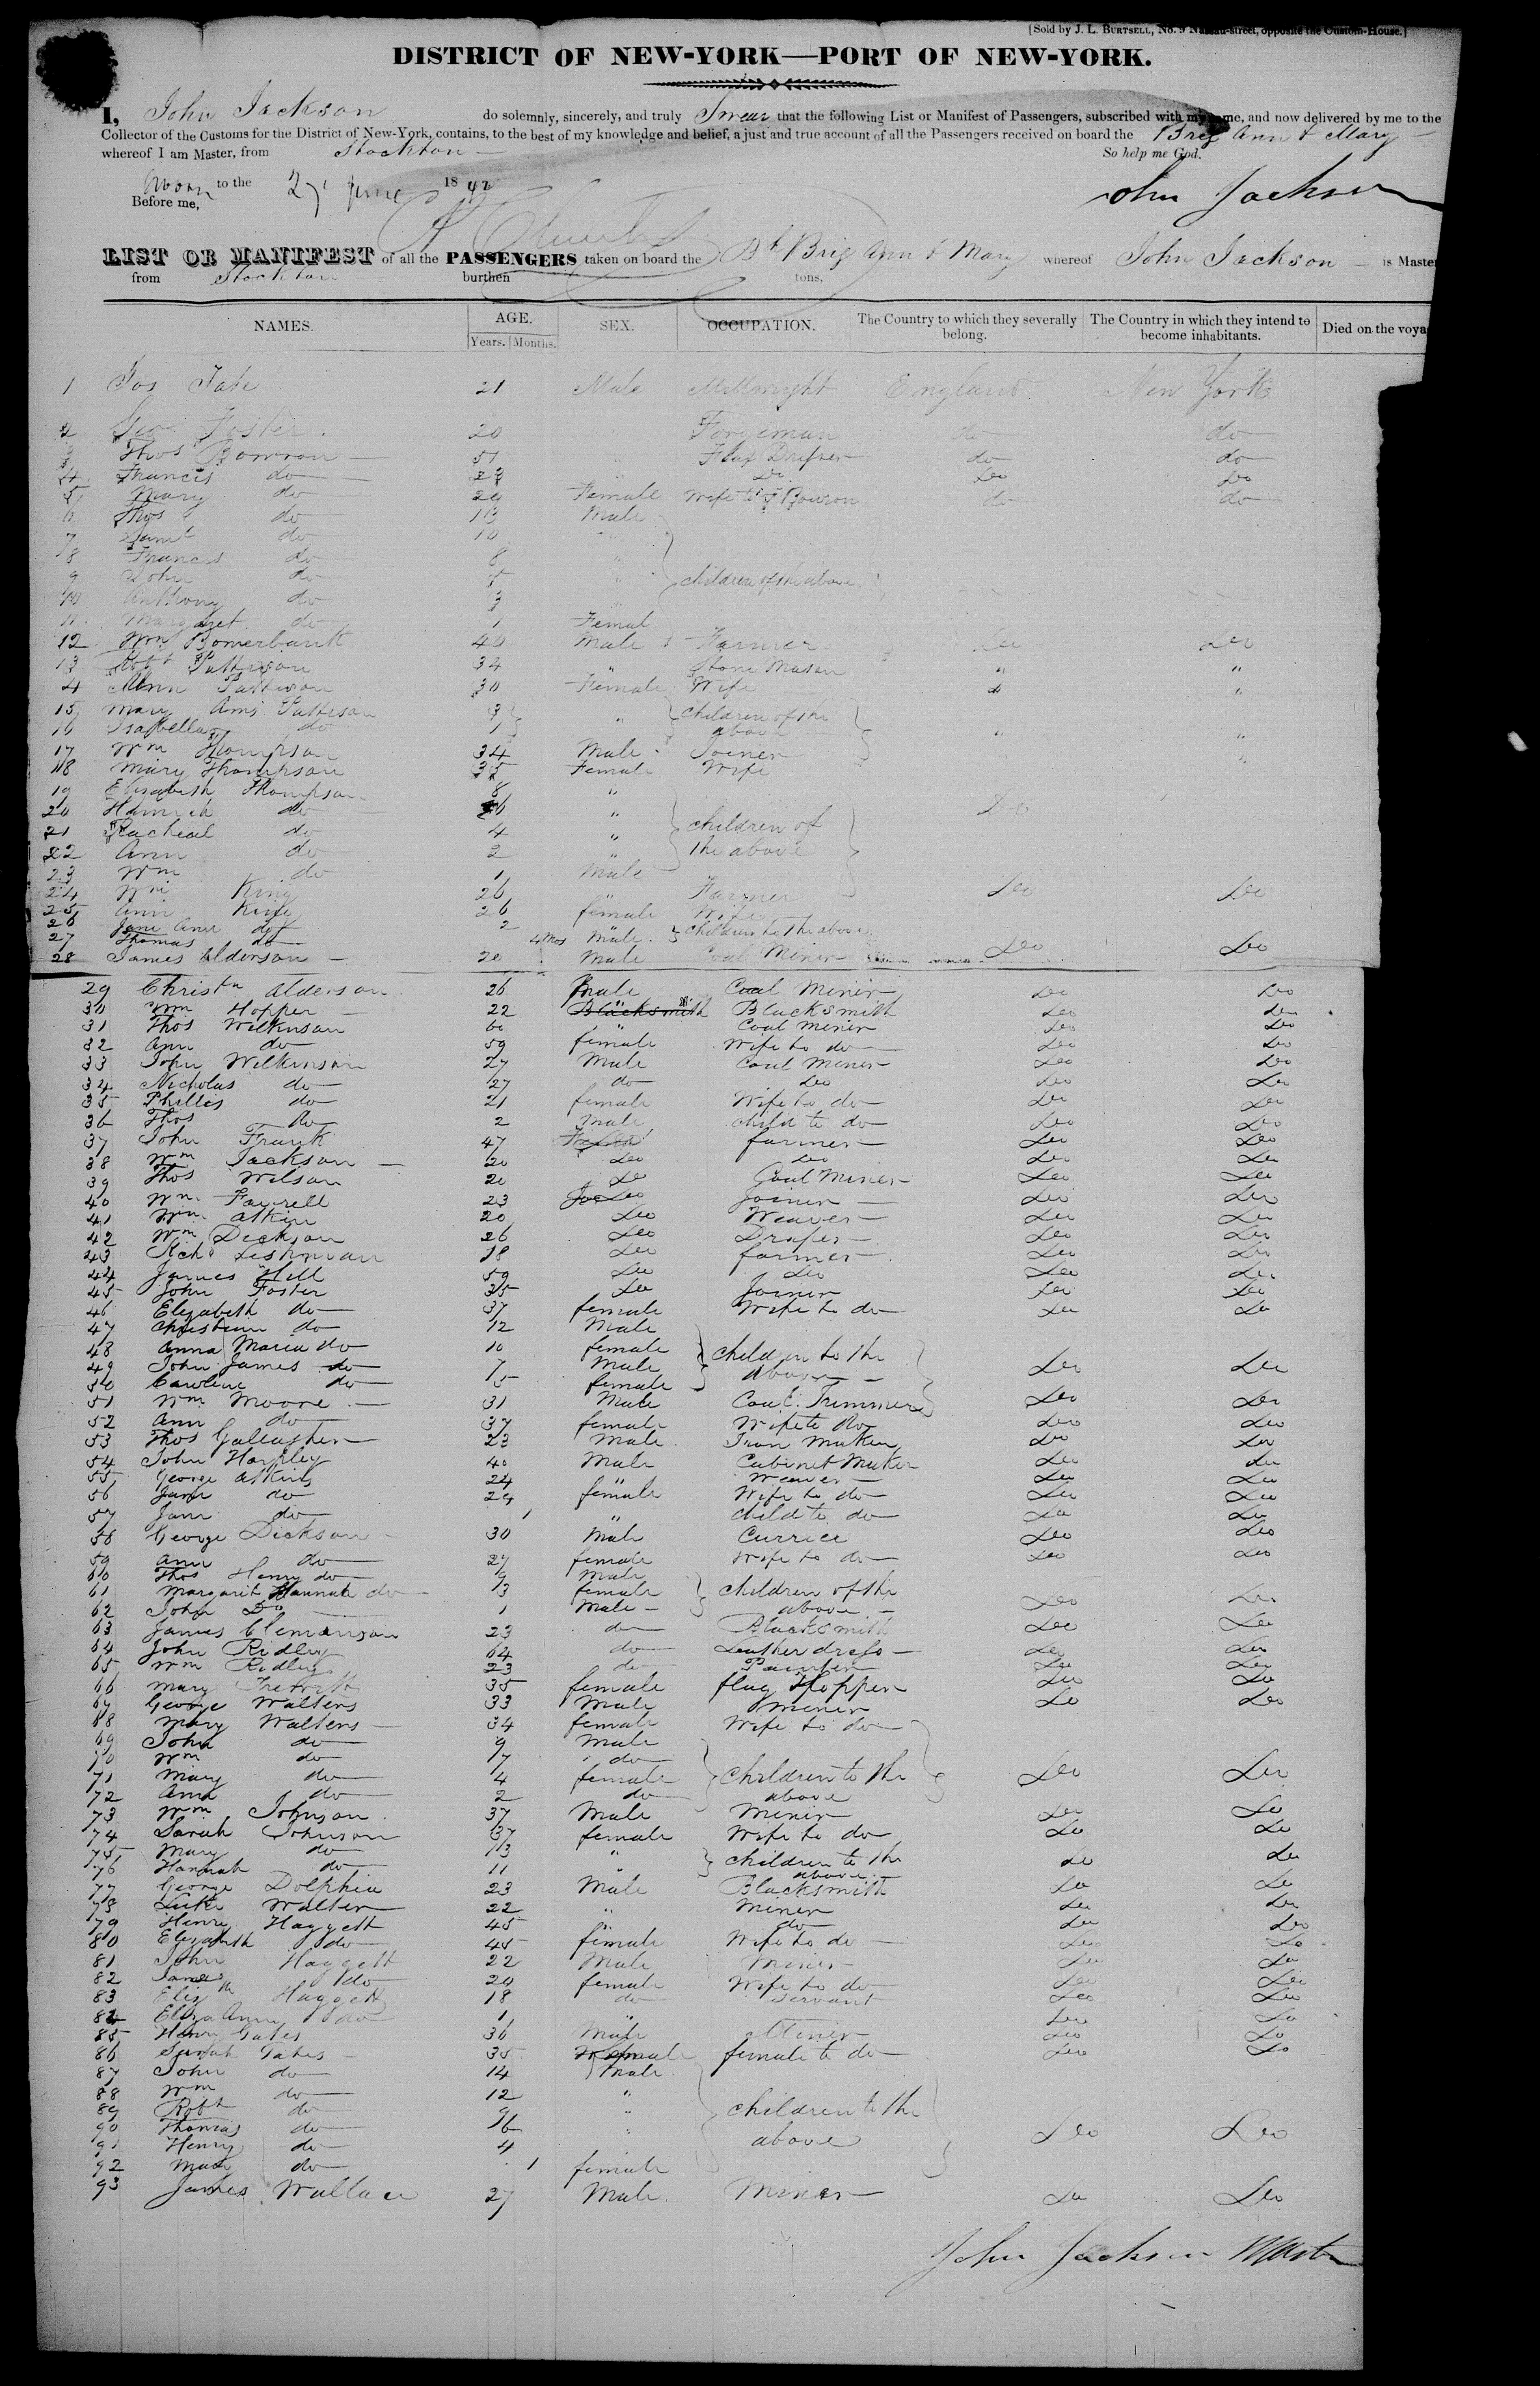 [Sold by J. L. BURTSELL, No. 9 Nassau-street, opposite the Custom-House.]
DISTRICT OF NEW-YORK—PORT OF NEW-YORK.
I, John Jackson do solemnly, sincerely, and truly Swear that the following List or Manifest of Passengers, subscribed with my name, and now delivered by me to the
Collector of the Customs for the District of New-York, contains, to the best of my knowledge and belief, a just and true account of all the Passengers received on board the Brig Ann & Mary
whereof I am Master, from Stockton So help me God.
Sworn to the 27 June 1842
Before me, John Jackson
LIST OR MANIFEST of all the PASSENGERS taken on board the Bh Brig Ann & Mary whereof John Jackson is Master
from Stockton burthen tons,
NAMES. AGE. SEX. OCCUPATION. The Country to which they severally belong. The Country in which they intend to become inhabitants. Died on the voya
Years. Months.
1 Jos Tate 21 Male Millwright England New York
2 Geo Foster 20 Forgeman do do
3 Thos Bowron 51 " Flax Dresser do do
4 Francis do 29 " Do Do Do
5 Mary do 29 Female Wife to F Bowron do do
6 Thos do 13 Male
7 do 10 "
8 Francis do 8 "
9 John do 5 " children of the above
10 Anthony do 3 "
11 Margaret do 1 Femal
12 Wm Bomerbank 40 Male Farmer Do Do
13 Robt Pattison 34 " Stone Mason " "
4 Ann Pattison 30 Female Wife " "
15 Mary Ann Pattison 3 " children of the
16 Isabella do 1 above " "
17 Wm Thompson 34 Male Joiner
18 Mary Thompson 35 Female Wife "
19 Elizabeth Thompson 8 "
20 Hannah do 6 " Do
21 Racheal do 4 " children of
22 Ann do 2 " the above
23 Wm do 1 Male
24 Wm King 26 " Farmer Do Do
25 Ann King 26 female Wife
26 Jane Ann do 2
27 Thomas do 4 Mos Male Children to the above
28 James Alderson 20 Male Coal Miner Do Do
29 Christr Alderson 26 Male Coal Miner Do Do
30 Wm Hopper 22 Blacksmith Blacksmith Do Do
31 Thos Wilkinson 60 " Coal Miner Do Do
32 Ann do 59 female Wife to do Do Do
33 John Wilkinson 27 Male Coal Miner Do Do
34 Nicholas do 27 do Do Do Do
35 Phillis do 21 female Wife to do Do Do
36 Thos Do 2 Male child to do Do Do
37 John Frank 47 farmer Do Do
38 Wm Jackson 20 Do Do Do Do
39 Thos Wilson 20 Do Coal Miner Do Do
40 Wm Fawrell 23 Do Joiner Do Do
41 Wm Atkin 20 Do Weaver Do Do
42 Wm Dickson 26 Do Draper Do Do
43 Richd Lishman 18 Do farmer Do Do
44 James Hill 59 Do Do Do Do
45 John Foster 35 Do Joiner Do Do
46 Elizabeth do 37 female Wife to do Do Do
47 Christian do 12 Male
48 Anna Maria do 10 female children to the
49 John James do 7 Male above Do Do
50 Caroline do 5 female
51 Wm Moore 31 Male Coal Trimmer Do Do
52 Ann do 37 female Wife to do Do Do
53 Thos Gallagher 23 Male Iron Maker Do Do
54 John Harpley 40 Male Cabinet Maker Do Do
55 George Atkins 24 " Weaver Do Do
56 Jane do 24 female Wife to do Do Do
57 Jane do 1 " child to do Do Do
58 George Dickson 30 Male Currier Do Do
59 Ann do 27 female Wife to do Do Do
60 Thos Henry do 9 Male
61 Margarit Hannah do 3 female children of the
62 John Do 1 Male above Do Do
63 James Clemanson 23 do Blacksmith Do Do
64 John Ridley 64 do Leather dress Do Do
65 Wm Ridley 23 do Painter Do Do
66 Mary 35 female Do Do
67 George Walters 33 Male Miner Do Do
68 Mary Walters 34 female Wife to do
69 John do 9 Male
70 Wm do 7 do
71 Mary do 4 female children to the Do Do
72 Ann do 2 do above
73 Wm Johnson 37 Male Miner Do Do
74 Sarah Johnson 37 female Wife to do Do Do
75 Mary do 13 " children to the Do Do
76 Hannah do 11 " above
77 George Dolphin 23 Male Blacksmith Do Do
78 Luke Walter 22 " Miner Do Do
79 Henry Haggett 45 " do Do Do
80 Elizabeth do 45 female Wife to do Do Do
81 John Haggett 22 Male Miner Do Do
82 James do 24 female Wife to do Do Do
83 Elizth Haggett 18 do Servant Do Do
84 Eliza Ann do 1 " Do Do
85 Henry Gates 36 Male Miner Do Do
86 Sarah Gates 35 female to do Do Do
87 John do 14 Male
88 Wm do 12 "
89 Robt do 9 " children to the
90 Thomas do 6 " above Do Do
91 Henry do 4
92 Mary do 1 female
93 James Wallace 27 Male Miner Do Do
John Jackson Master